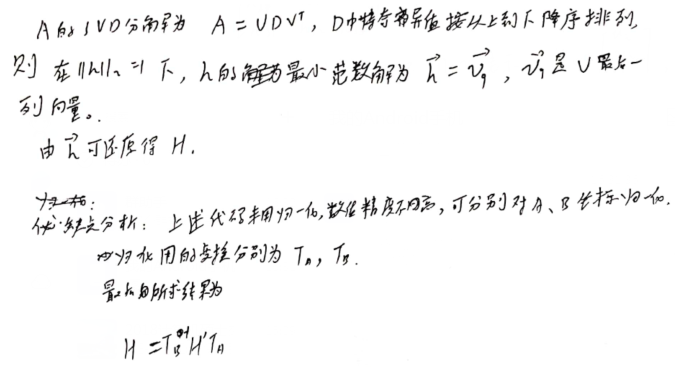 A的SVD分解为 A = UDVᵀ, D中特奇异值按从上到下降序排列,
则在‖h‖₂ = 1 下, h的解为最小范数解为 h⃗ = v⃗₉, v⃗₉是 V 最后一
列向量。
由 h⃗ 可还原得 H.
优缺点分析: 上述代码未用归一化,数值精度不高,可分别对A、B坐标归一化.
归一化用的变换分别为 T_A, T_B.
最后的所求结果为
H = T_B⁻¹H'T_A